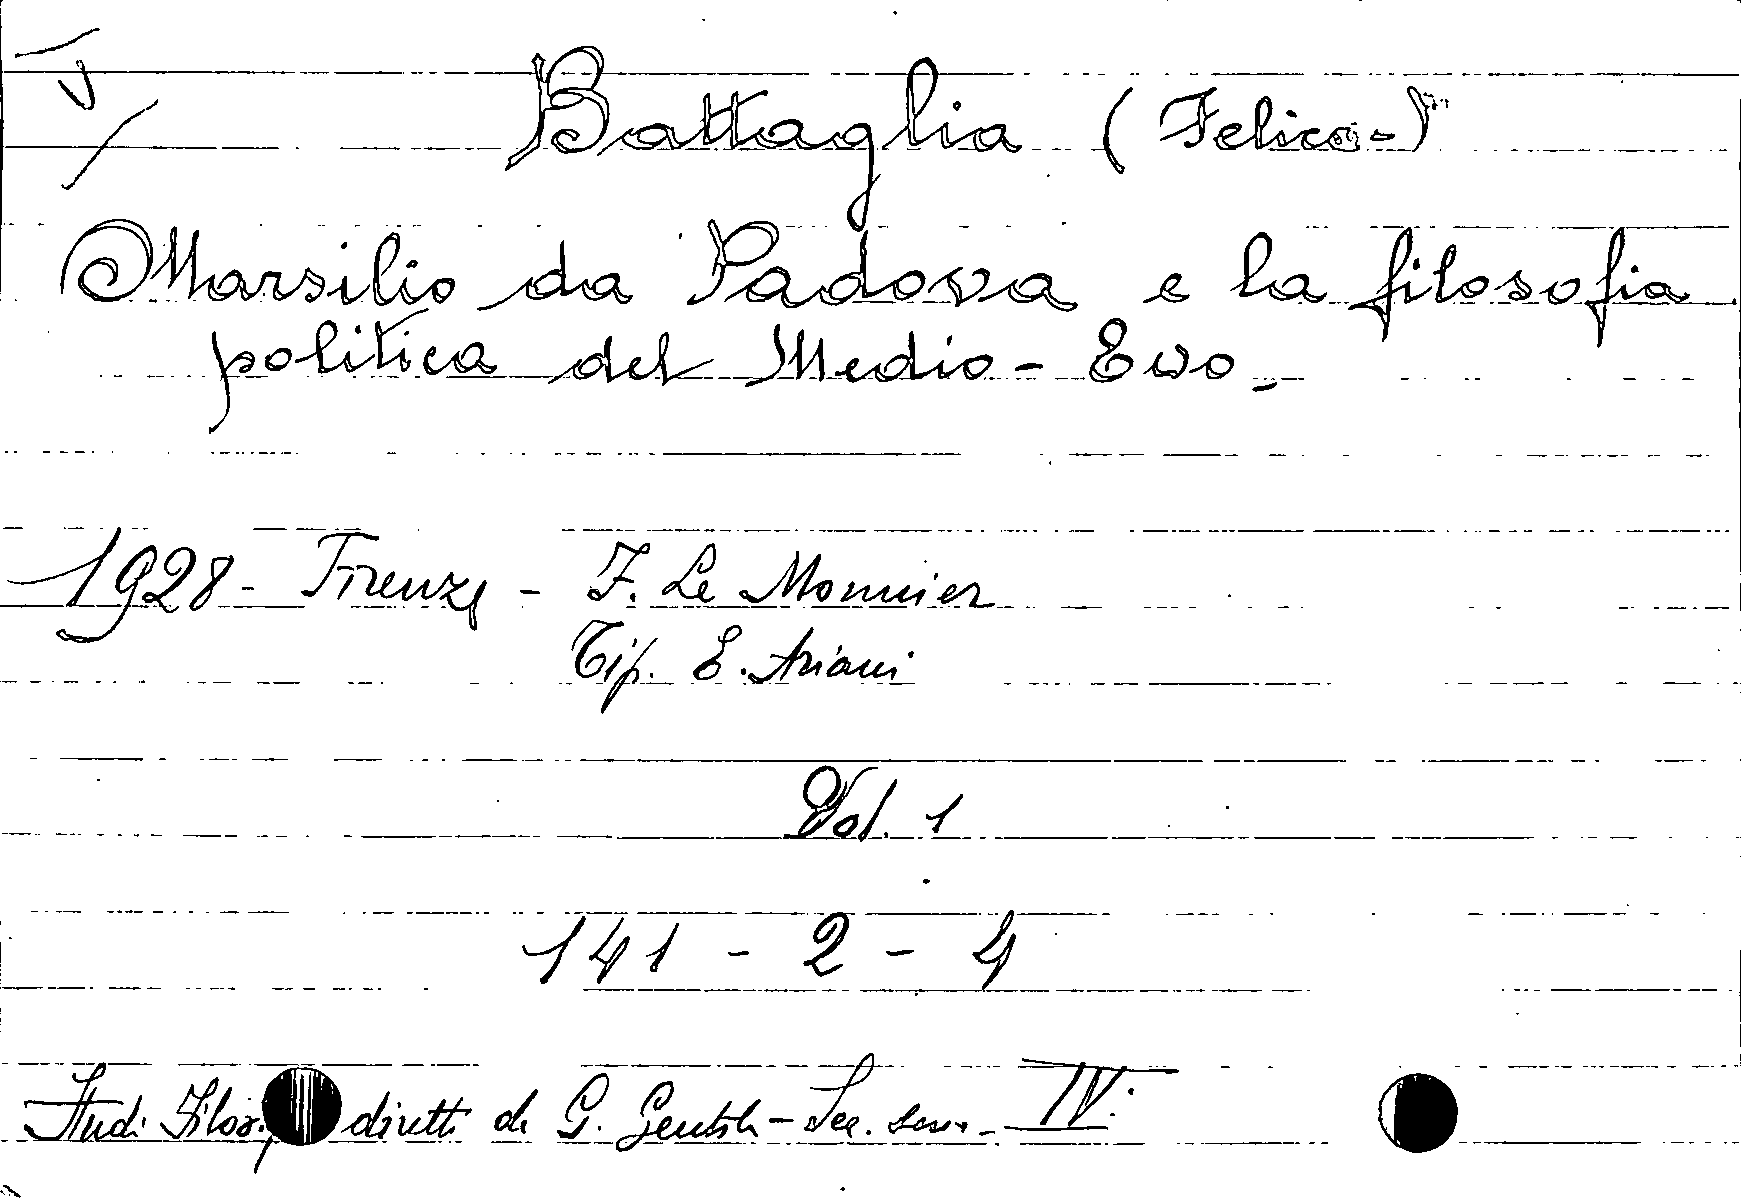 Battaglia (Felice-)
Marsilio da Padova e la filosofia
politica del Medio-Evo.
1928 - Firenze - F. Le Monnier
Tip. E. Ariani
Vol. 1
141 - 2 - 4
Studi diretti da G. Gentile - Sec. serie - IV.